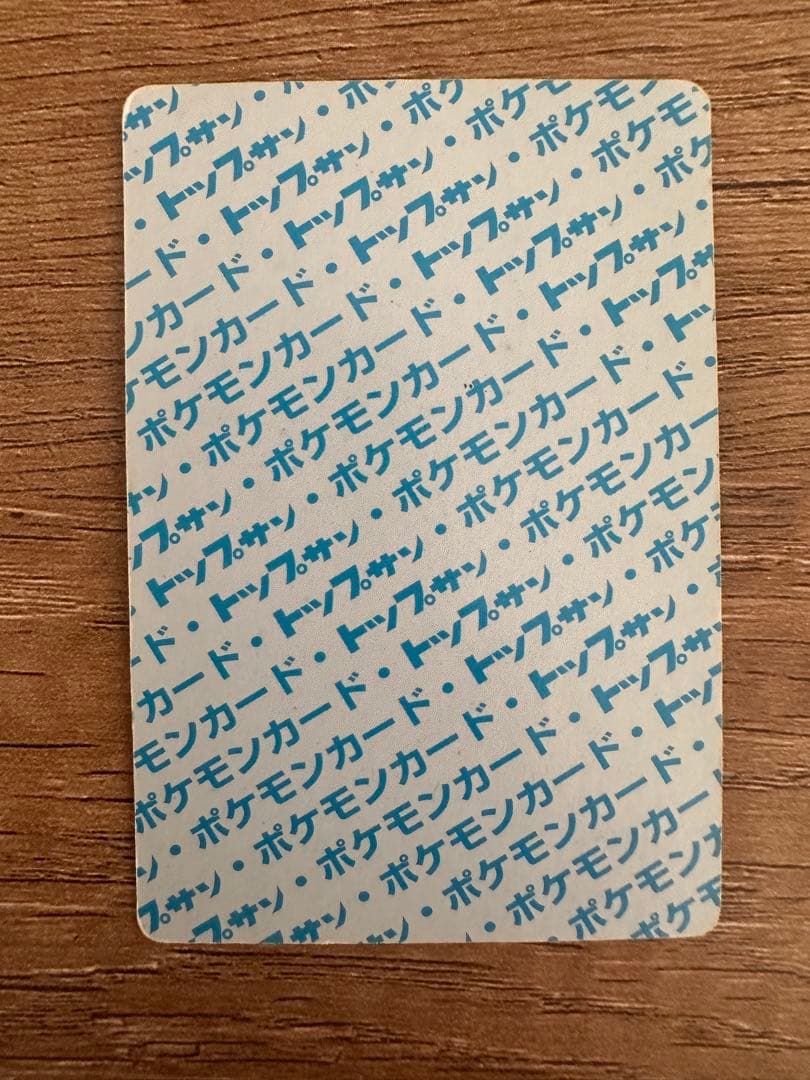 サン
ップサン・
・トップサン・ポ
ード・トップサン・ポケ
ンカード・トップサン・ポケモ
ケモンカード・トップサン・ポケモン
ポケモンカード・トップサン・ポケモ
ン・ポケモンカード・トップサン・ポケ
プサン・ポケモンカード・トップサン・
トップサン・ポケモンカード・トップサ
ード・トップサン・ポケモンカード・トッ
カード・トップサン・ポケモンカード・
モンカード・トップサン・ポケモンカー
ポケモンカード・トップサン・ポケモン
・ポケモンカード・トップサン・ポケ
プサン・ポケモンカード・トップサン・
プサン・ポケモンカード・トップサ
サン・ポケモンカード・トッ
ン・ポケモンカード・
・ポケモンカー
ポケモン
ポケ